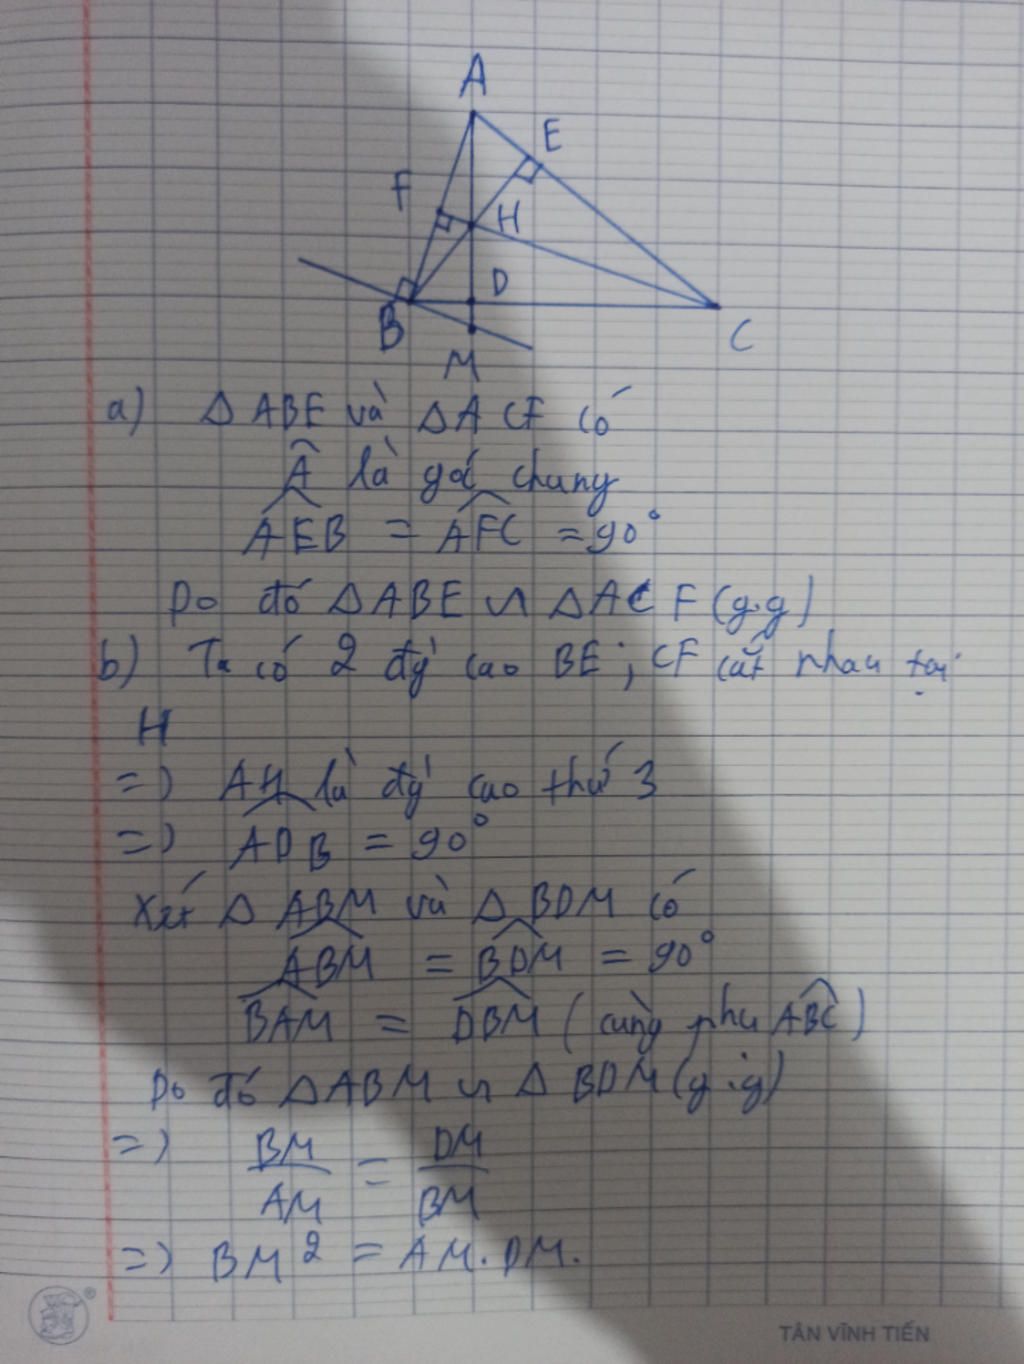 A
E
F
H
D
B
C
M
a) Δ ABE và Δ ACF có
Â là góc chung
AEB = AFC = 90°
Do đó Δ ABE ∽ Δ ACF (g.g)
b) Ta có 2 đg cao BE ; CF cắt nhau tại
H
=> AH là đg cao thứ 3
=> ADB = 90°
Xét Δ ABM và Δ BDM có
ABM = BDM = 90°
BAM = DBM ( cùng phụ ABC )
Do đó Δ ABM ∽ Δ BDM (g.g)
=> BM/AM = DM/BM
=> BM² = AM.DM.
TÂN VĨNH TIẾN